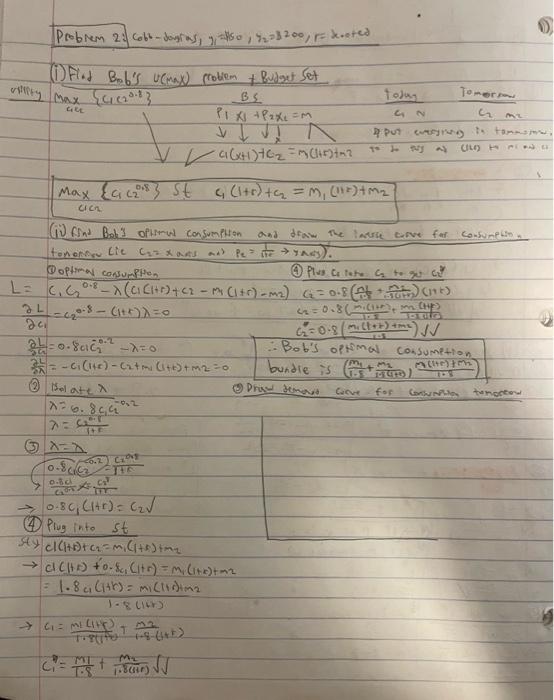 Problem 2: Cobb-douglas, y₁=450, y₂=8200, r=
(i) Find Bob's U(max) problem + Budget Set
utility Max {c₁c₂^0.8} BS Today Tomorrow
c₁c₂ P₁x₁+P₂x₂=m c₁ c₂ m₂
put everything in tommorow
c₁(1+r)+c₂=m₁(1+r)+m₂
Max {c₁c₂^0.8} St c₁(1+r)+c₂=m₁(1+r)+m₂
c₁c₂
(ii) find Bob's optimal consumption and draw the curve for consumption
tomorrow (ie C₂=x axis and P₂=1/(1+r) → y axis).
① optimal consumption
L = C₁C₂^0.8-λ(C₁(1+r)+c₂-m₁(1+r)-m₂)
∂L/∂c₁=c₂^0.8-(1+r)λ=0
∂L/∂c₂=0.8c₁c₂^-0.2-λ=0
∂L/∂λ=-c₁(1+r)-c₂+m₁(1+r)+m₂=0
② Isolate λ
λ=0.8c₁c₂^-0.2
λ=c₂^0.8/(1+r)
③ λ=λ
0.8c₁c₂^-0.2=c₂^0.8/(1+r)
→ 0.8c₁(1+r)=c₂√
④ Plug into st
c₁(1+r)+c₂=m₁(1+r)+m₂
→ c₁(1+r)+0.8c₁(1+r)=m₁(1+r)+m₂
= 1.8c₁(1+r)=m₁(1+r)+m₂
1.8(1+r)
→ c₁=m₁(1+r)/1.8(1+r)+m₂/1.8(1+r)
c₁*=m₁/1.8+m₂/1.8(1+r)√√
④ Plug c₁ into C₂ to get c₂*
c₂=0.8(m₁/1.8+m₂/1.8(1+r))(1+r)
c₂=0.8(m₁(1+r)/1.8+m₂(1+r)/1.8(1+r))
c₂*=0.8(m₁(1+r)+m₂/1.8)√√
∴ Bob's optimal consumption
bundle is (m₁/1.8+m₂/1.8(1+r), m₁(1+r)+m₂/1.8)
⑤ Draw demand curve for consumption tomorrow